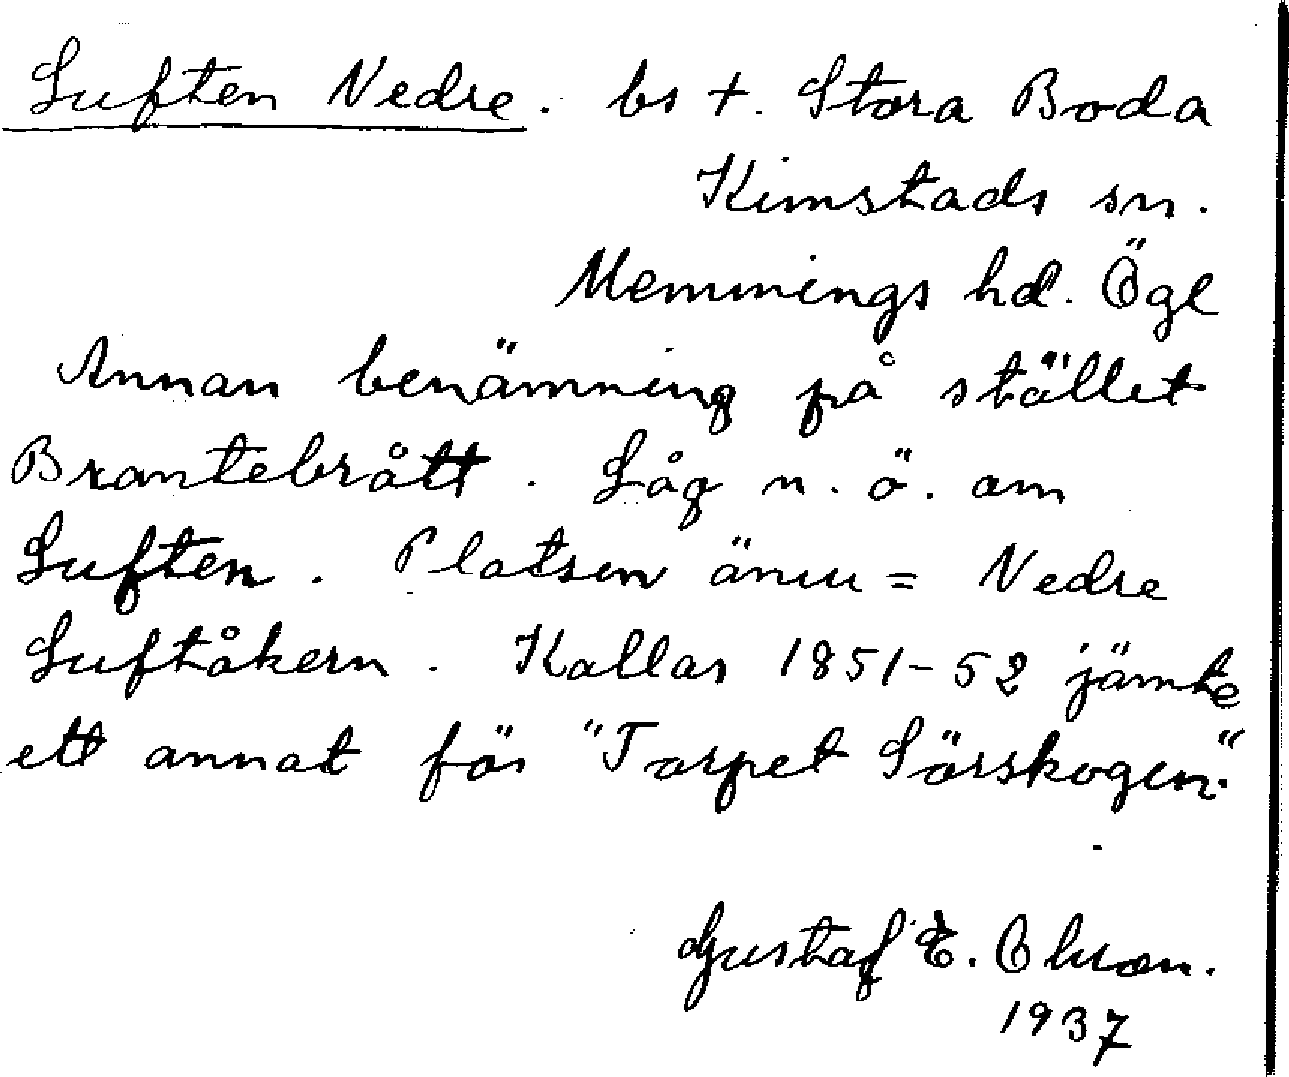 Luften Nedre. bs +. Stora Boda
Kimstads sn.
Memmings hd. Ögl
Annan benämning på stället
Brantebrått. Låg n. ö. om
Luften. Platsen ännu = Nedre
Luftåkern. Kallas 1851-52 jämte
ett annat för "Torpet Sörskogen."
Gustaf E. Olsson.
1937